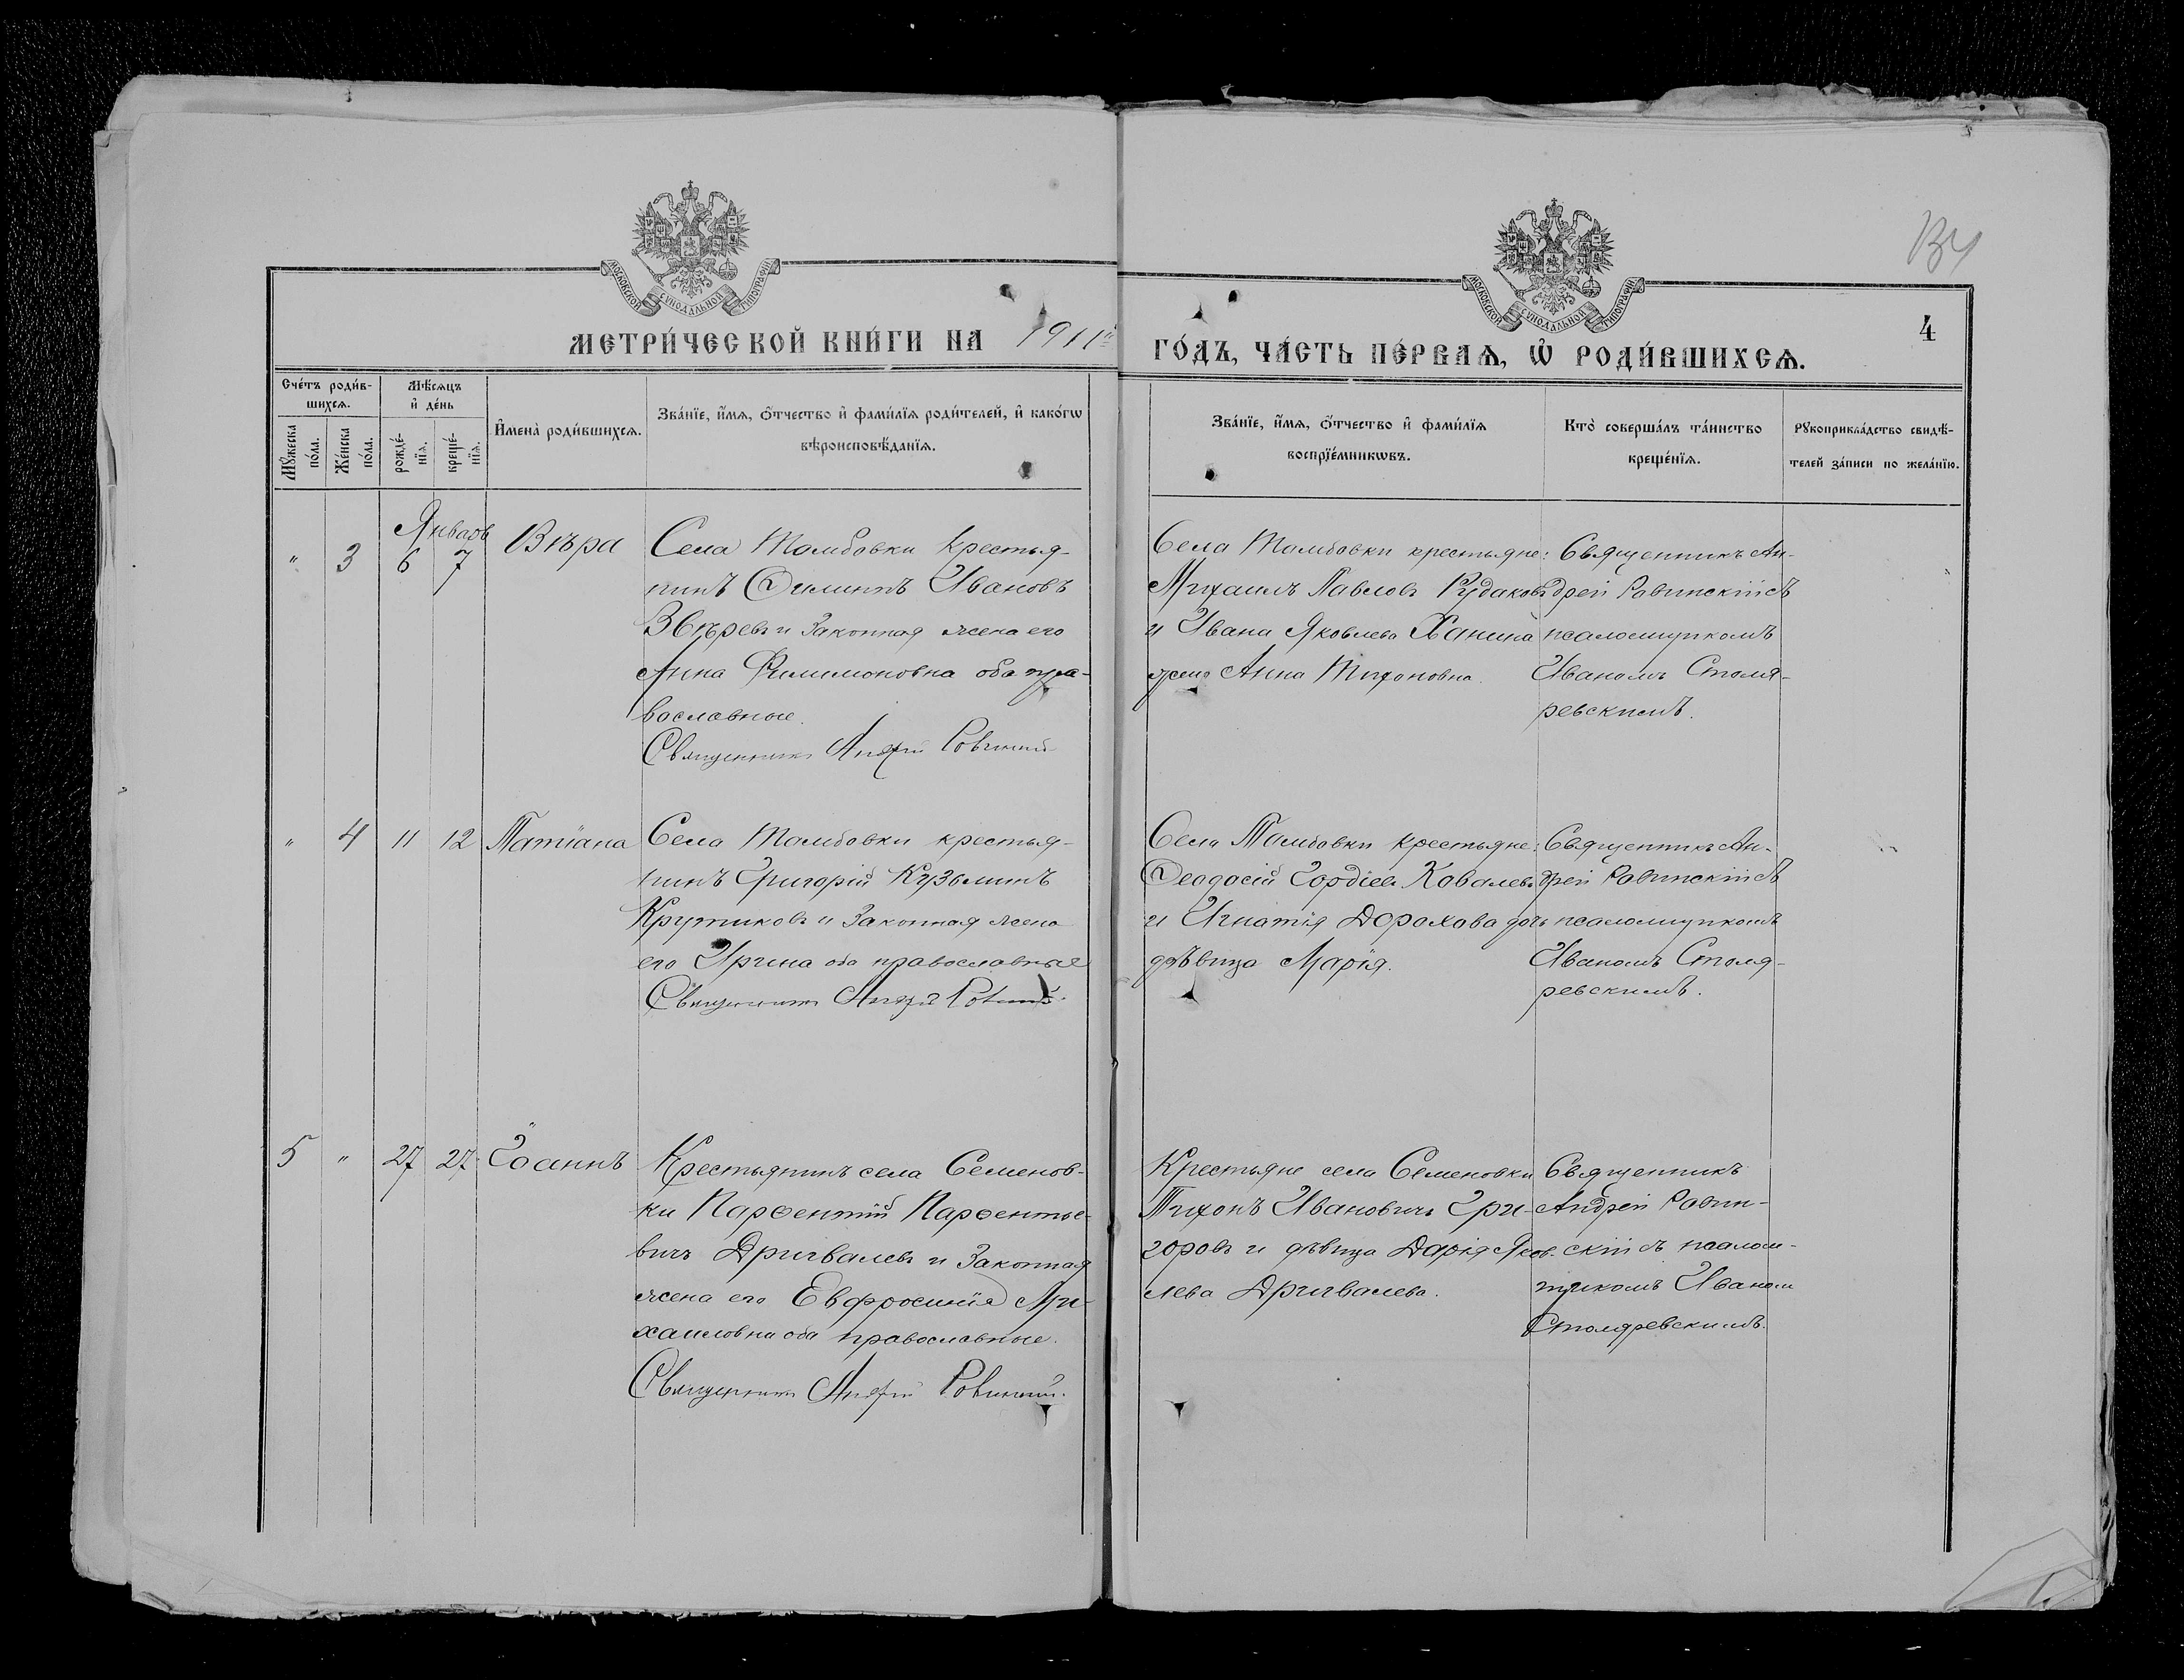 134
МОСКОВСКОЙ СѴНОДАЛЬНОЙ ТИПОГРАФІИ
МОСКОВСКОЙ СѴНОДАЛЬНОЙ ТИПОГРАФІИ
4
МЕТРИ́ЧЕСКОЙ КНИ́ГИ НА 1911й
ГО́ДЪ, ЧА́СТЬ ПЕ́РВАѦ, Ѡ҆ РОДИ́ВШИХСѦ.
Сче́тъ роди́в-
шихсѧ.
Мꙋ́жеска по́ла.
Же́нска по́ла.
Мѣ́сѧцъ
и҆ де́нь
рожде́-
нїѧ.
креще́-
нїѧ.
И҆мена̀ роди́вшихсѧ.
Зва́нїе, и҆́мѧ, ѻ҆́тчество и҆ фами́лїѧ роди́телей, и҆ како́гѡ
вѣроисповѣ́данїѧ.
Зва́нїе, и҆́мѧ, ѻ҆́тчество и҆ фами́лїѧ
воспрїе́мникѡвъ.
Кто̀ соверша́лъ та́инство
креще́нїѧ.
Рꙋкоприкла́дство свидѣ́-
телей за́писи по жела́нїю.
Январь
" 3 6 7 Вѣра
Села Тамбовки крестья-
нинъ Филиппъ Ивановъ
Звѣревъ и законная жена его
Анна Филимоновна оба пра-
вославные.
Священникъ Андрей Ровинскій
Села Тамбовки крестьяне:
Михаилъ Павловъ Рудаковъ
и Ивана Яковлева Ханина
жена Анна Тихоновна.
Священникъ Ан-
дрей Ровинскій съ
псаломщикомъ
Иваномъ Столя-
ревскимъ.
" 4 11 12 Татіана
Села Тамбовки крестья-
нинъ Григорій Кузьминъ
Крутиковъ и законная жена
его Ирина оба православные
Священникъ Андрей Ровинскій
Села Тамбовки крестьяне:
Ѳеодосій Гордіевъ Ковалевъ
и Игнатія Дорохова дочь
дѣвица Марія.
Священникъ Ан-
дрей Ровинскій съ
псаломщикомъ
Иваномъ Столя-
ревскимъ.
5 " 27 27 Іоаннъ
Крестьянинъ села Семенов-
ки Парѳентій Парѳентье-
вичъ Дригвалевъ и законная
жена его Евфросинія Ми-
хаиловна оба православные.
Священникъ Андрей Ровинскій.
Крестьяне села Семеновки
Тихонъ Ивановичъ Гри-
горовъ и дѣвица Дарія Яков-
лева Дригвалева.
Священникъ
Андрей Ровин-
скій съ псалом-
щикомъ Иваном
Столяревскимъ.